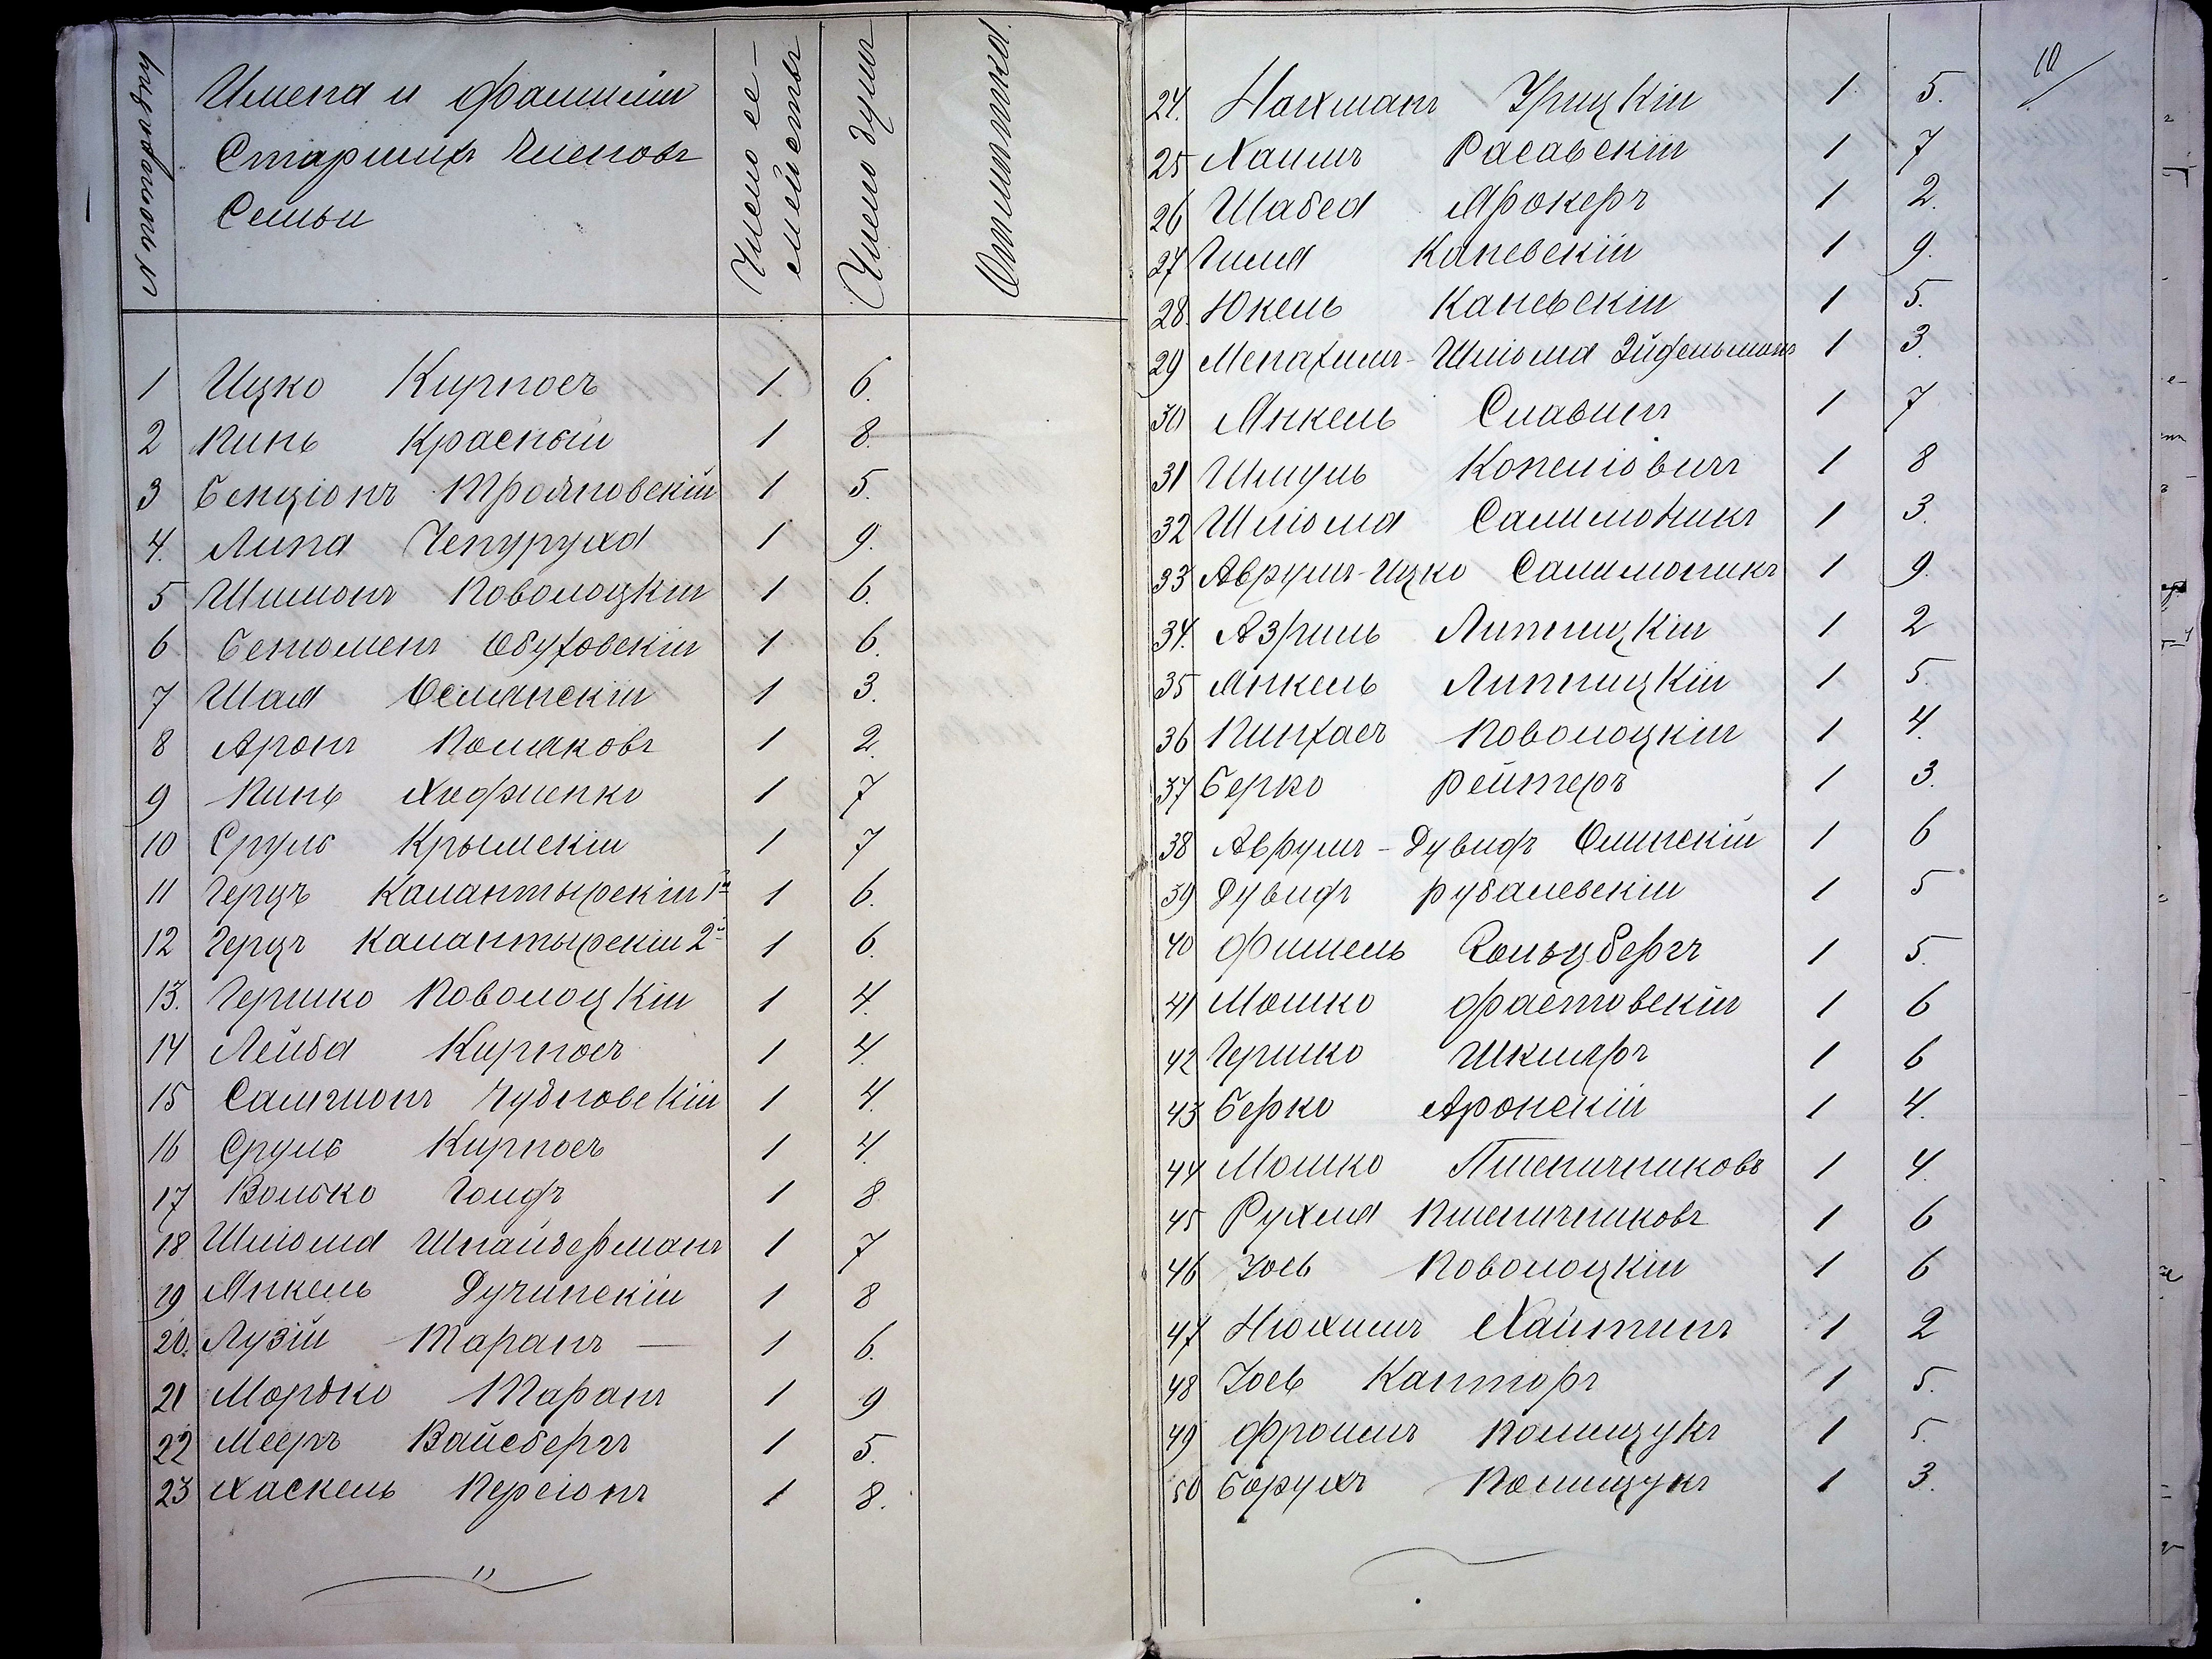 № по порядку
Имена и фамиліи
Старшихъ членовъ
Семьи
Число се-
мействъ
Число душъ
Отметка.
1 Ицко Кирносъ 1 6.
2 Пинь Красный 1 8.
3 Бенціонъ Трояновскій 1 5.
4. Липа Чепуруха 1 9.
5 Шимонъ Поволоцкій 1 6.
6 Бенюменъ Обуховскій 1 6.
7 Шая Османскій 1 3.
8 Аронъ Поляковъ 1 2.
9 Пинь 1 7
10 Сруль Крымскій 1 7
11 Герцъ Калантырскій 1й 1 6.
12 Герцъ Калантырскій 2й 1 6.
13. Гершко Поволоцкій 1 4.
14 Лейба Кирносъ 1 4.
15 Самсионъ Чубновскій 1 4.
16 Сруль Кирносъ 1 4.
17 Волько Голфъ 1 8
18 Шліома Шнайдерманъ 1 7
19 Янкель Дучинскій 1 8
20. Лузій Таранъ — 1 6.
21 Мордко Таранъ 1 9
22 Мееръ Вайсбергъ 1 5.
23 Хаскель Персіонъ 1 8.
10
24. Нахманъ Урицкій 1 5.
25 Хаимъ Расавскій 1 7
26 Шабса Ярокеръ 1 2.
27 Гиля Каневскій 1 9.
28. Юкель Каневскій 1 5.
29 Менахимъ-Шліома Зйдельманъ 1 3.
30 Янкель Славинъ 1 7
31 Шмуль Копеліовичъ 1 8
32 Шліома Салимоникъ 1 3.
33 Аврумъ-Ицко Салимоникъ 1 9.
34. Азриль Липницкій 1 2
35 Янкель Липницкій 1 5.
36 Пинхасъ Поволоцкій 1 4.
37 Берко Рейтеръ 1 3.
38 Аврумъ-Дувидъ Олинскій 1 6
39 Дувидъ Рубалевскій 1 5
40 Фишель Гольцбергъ 1 5.
41 Мошко Фастовскій 1 6
42 Гершко Шкляръ 1 6
43 Берко Аронскій 1 4.
44 Мошко Пшеничниковъ 1 4.
45 Рухля Пшеничниковъ 1 6
46 Іось Поволоцкій 1 6
47 Нюхимъ Хайтинъ 1 2
48 Іось Канторъ 1 5.
49 Фроимъ Полищукъ 1 5.
50 Борухъ Полищукъ 1 3.